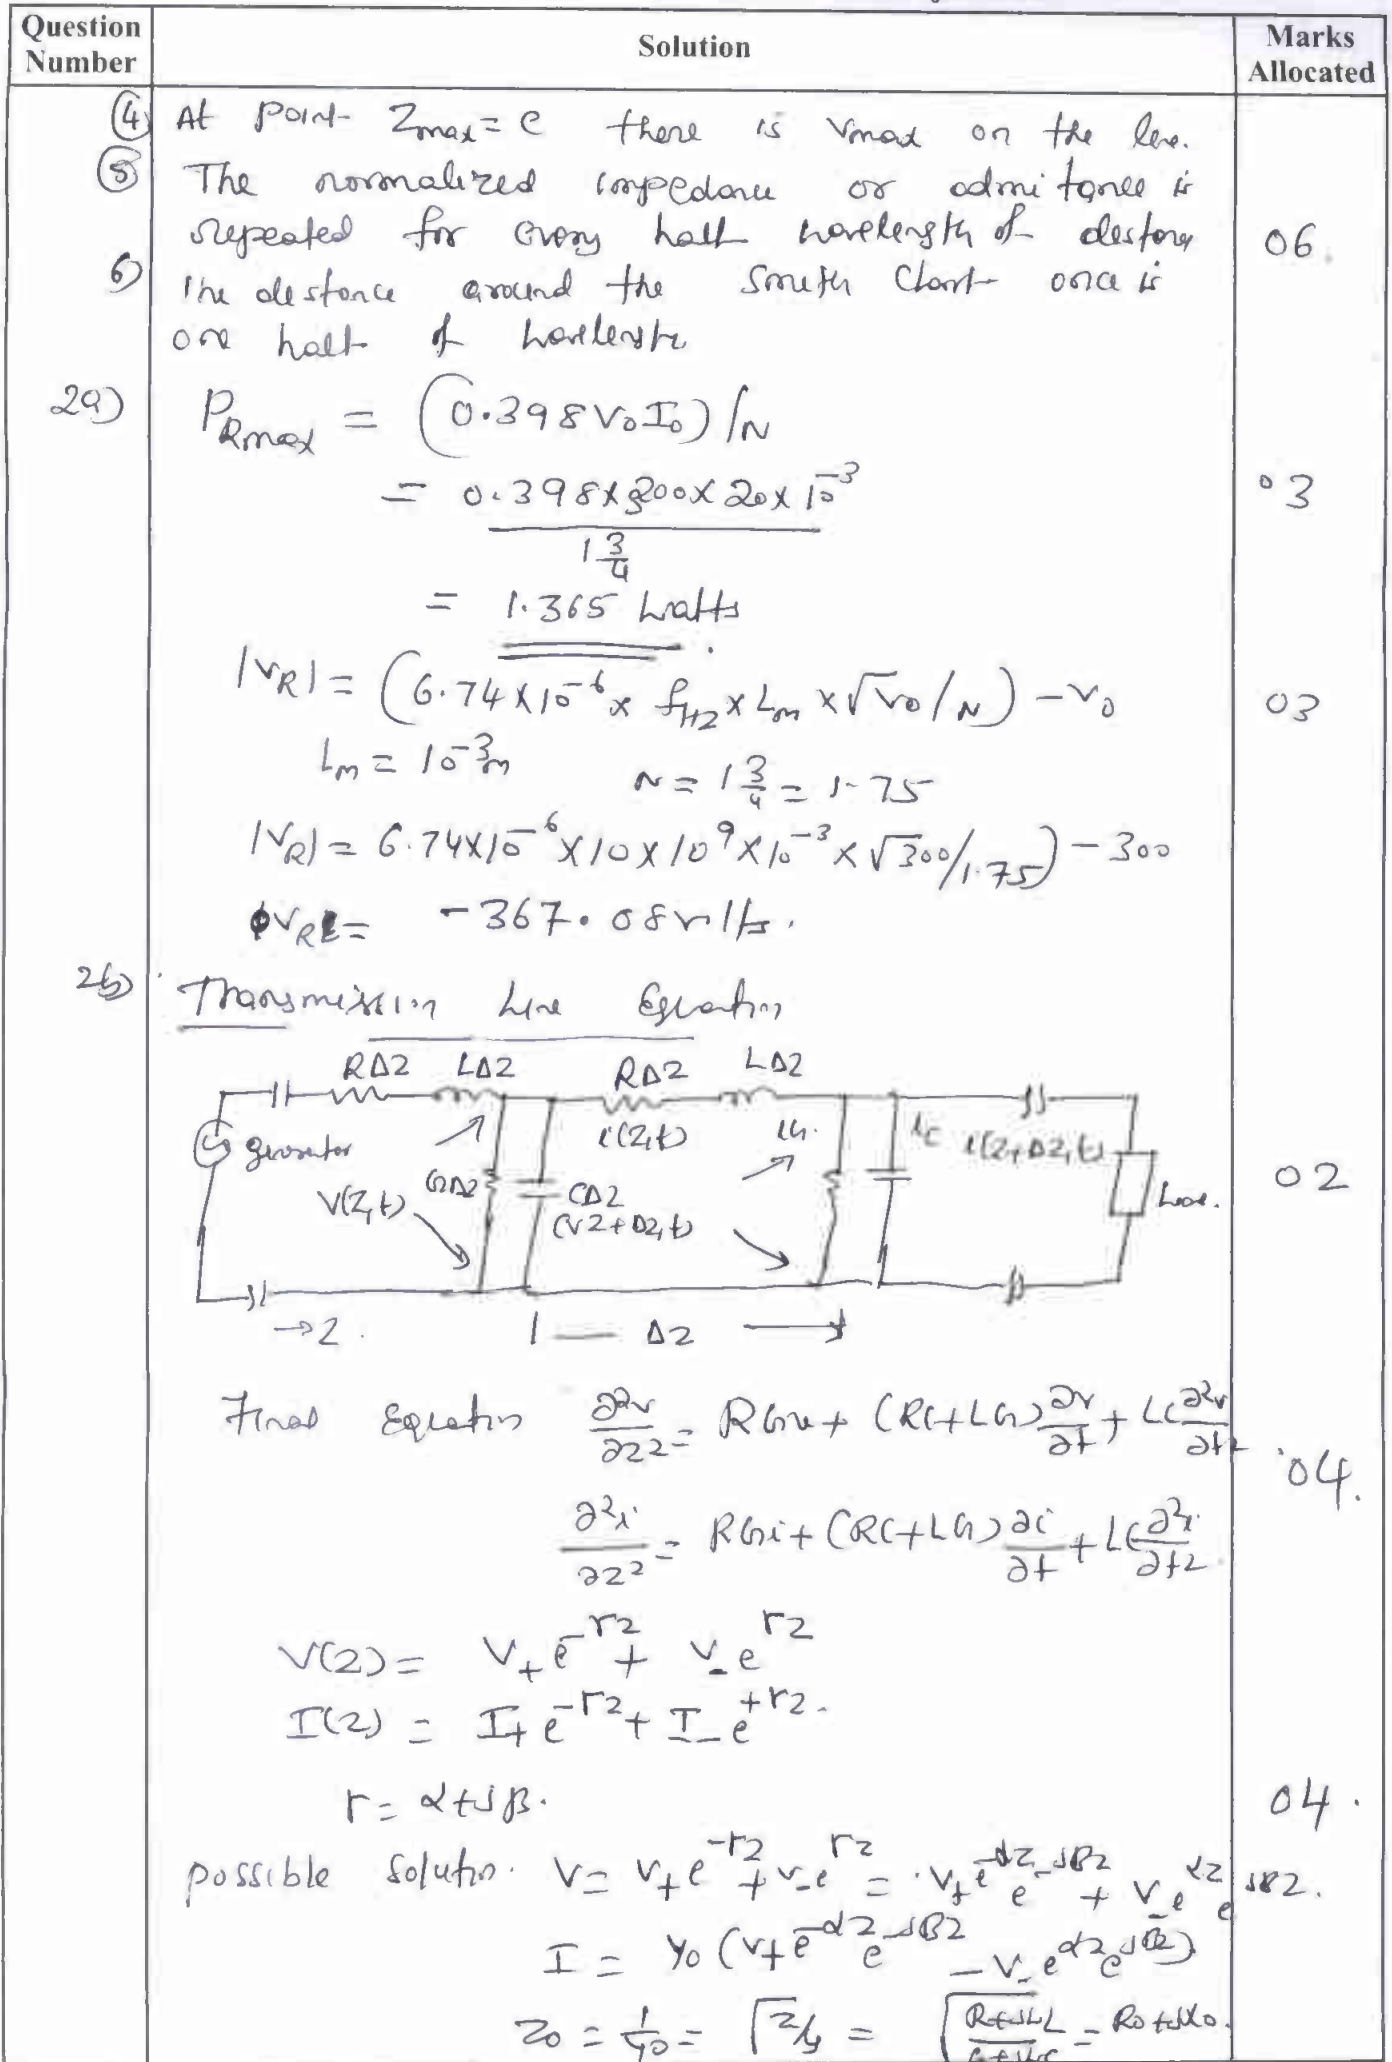 Question Number
Solution
Marks Allocated
④ At point Zmax = C there is Vmax on the line.
⑤ The normalized impedance or admittance is
repeated for every half wavelength of distance 06
6) The distance around the Smith Chart once is
one half of wavelength
2a) P_Rmax = (0.398 V₀I₀)/N
= 0.398×300×20×10⁻³ 03
1 3/4
= 1.365 watts
|V_R| = (6.74×10⁻⁶ × f_Hz × L_m × √V₀/N) - V₀ 03
L_m = 10⁻³m N = 1 3/4 = 1.75
|V_R| = 6.74×10⁻⁶×10×10⁹×10⁻³×√300/1.75) - 300
V_R = -367.08 volts.
2b) Transmission Line Equation
RΔz LΔz RΔz LΔz
generator i(z,t) i_G. i_C i(z+Δz,t)
V(z,t) GΔz CΔz Load. 02
(Vz+Δz,t)
→z. Δz
Final Equation ∂²v/∂z² = RGv + (RC+LG) ∂v/∂t + LC ∂²v/∂t²
04.
∂²i/∂z² = RGi + (RC+LG) ∂i/∂t + LC ∂²i/∂t²
V(z) = V₊e^-rz + V₋e^rz
I(z) = I₊e^-rz + I₋e^+rz.
r = α+jβ. 04.
possible solution. V = V₊e^-rz + V₋e^rz = V₊e^-αz e^-jβz + V₋e^αz e^jβz.
I = Y₀ (V₊e^-αz e^-jβz - V₋e^αz e^jβz)
Z₀ = 1/Y₀ = √Z/Y = √(R+jωL/G+jωC) = R₀+jX₀.